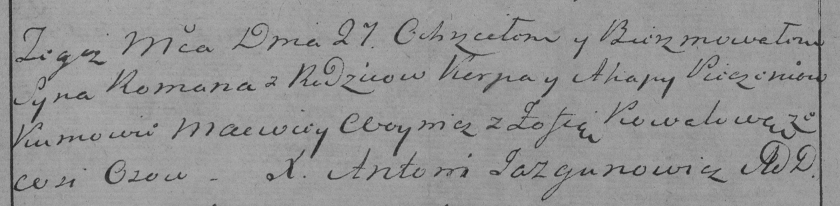 Tegoż Mca Dnia 27. Ochrzciłem y Bierzmowałem
Syna Romana z Rodziców Karpa y Ahapy Pieczeniow
Kumowie Maciey Woynicz z Zofią Kowalową ze
wsi Osow - X. Antoni Jazgunowicz